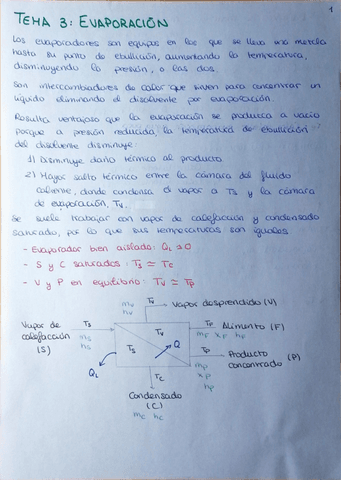 1
TEMA 3: EVAPORACIÓN
Los evaporadores son equipos en los que se lleva una mezcla
hasta su punto de ebullición, aumentando la temperatura,
disminuyendo la presión, o las dos.
Son intercambiadores de calor que sirven para concentrar un
líquido eliminando el disolvente por evaporación.
Resulta ventajoso que la evaporación se produzca a vacío
porque a presión reducida, la temperatura de ebullición
del disolvente disminuye:
1) Disminuye daño térmico al producto
2) Mayor salto térmico entre la cámara del fluido
caliente, donde condensa el vapor a Ts y la cámara
de evaporación, Tv.
Se suele trabajar con vapor de calefacción y condensado
saturado, por lo que sus temperaturas son iguales
- Evaporador bien aislado: QL ≃ 0
- S y C saturados: Ts ≃ Tc
- V y P en equilibrio: Tv ≃ Tp
mv hv Tv Vapor desprendido (V)
Vapor de calefacción (S) Ts ms hs
TF Alimento (F)
mF xF hF
Ts Tv Q
Tp Producto concentrado (P)
mp xp hp
QL
Tc
Condensado
(C)
mc hc